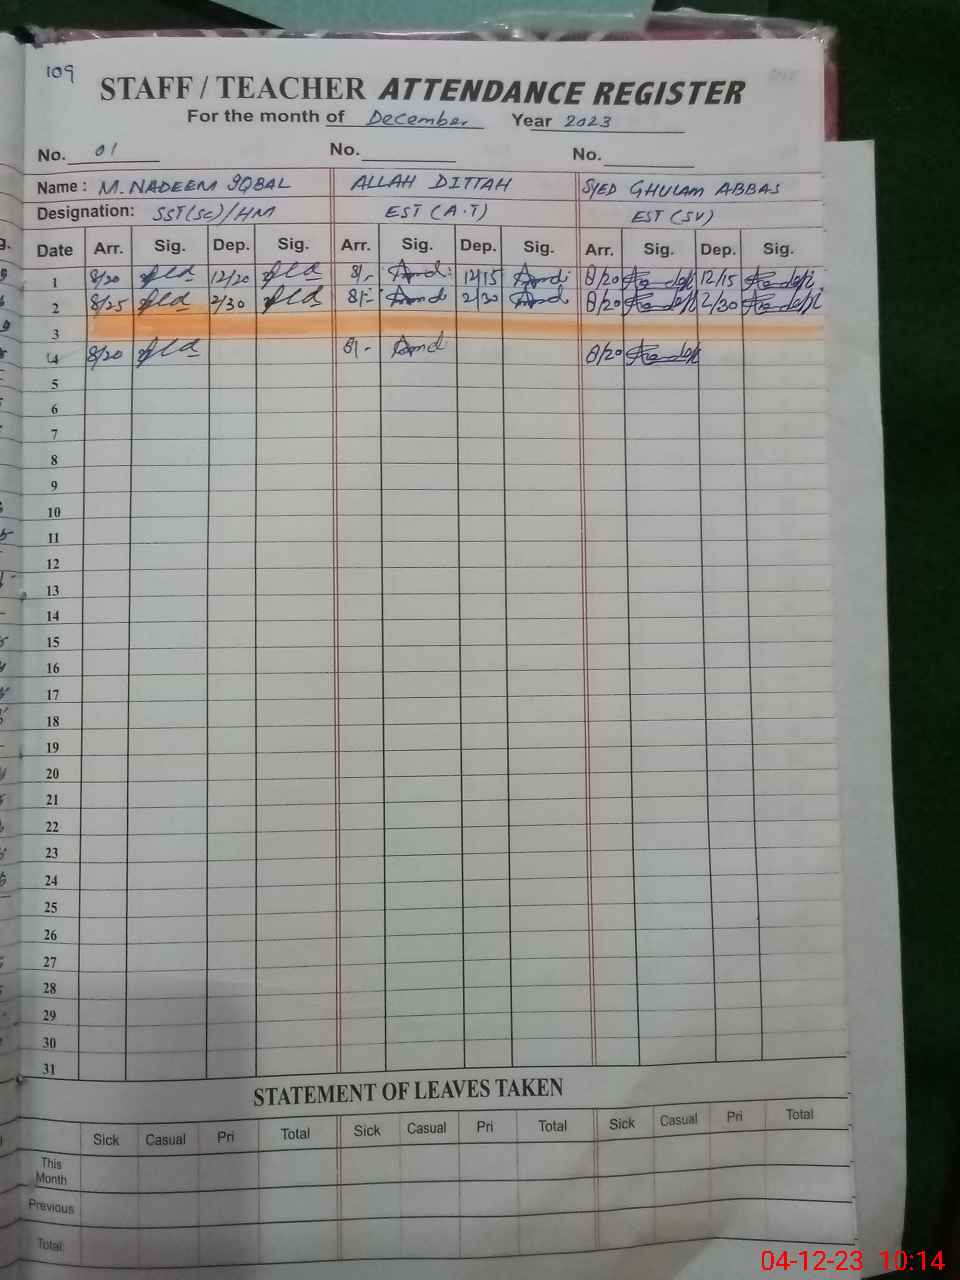 109
STAFF / TEACHER ATTENDANCE REGISTER
For the month of December Year 2023
No. 01 No. No.
Name : M. NADEEM IQBAL ALLAH DITTAH SYED GHULAM ABBAS
Designation: SST(SC)/HM EST (A.T) EST (SV)
Date Arr. Sig. Dep. Sig. Arr. Sig. Dep. Sig. Arr. Sig. Dep. Sig.
1 8/20 12/20 8/- 12/15 8/20 12/15
2 8/25 2/30 8/- 2/30 8/20 2/30
3
4 8/20 8/- 8/20
5
6
7
8
9
10
11
12
13
14
15
16
17
18
19
20
21
22
23
24
25
26
27
28
29
30
31
STATEMENT OF LEAVES TAKEN
Sick Casual Pri Total Sick Casual Pri Total Sick Casual Pri Total
This
Month
Previous
Total:
04-12-23 10:14